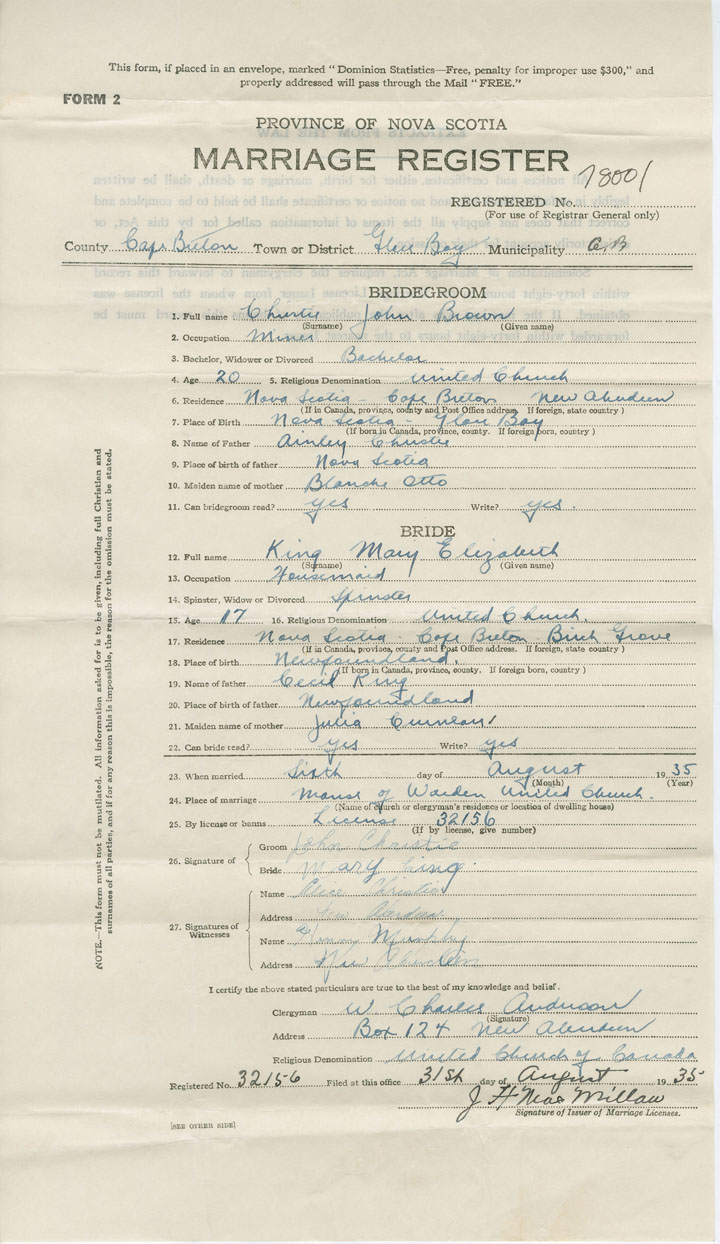 This form, if placed in an envelope, marked "Dominion Statistics—Free, penalty for improper use $300," and
properly addressed will pass through the Mail "FREE."
FORM 2
PROVINCE OF NOVA SCOTIA
MARRIAGE REGISTER
REGISTERED No.
(For use of Registrar General only)
County Cape Breton Town or District Glace Bay Municipality C.B
BRIDEGROOM
1. Full name Christie John Brown
(Surname) (Given name)
2. Occupation Miner
3. Bachelor, Widower or Divorced Bachelor
4. Age 20 5. Religious Denomination United Church
6. Residence Nova Scotia - Cape Breton New Aberdeen
(If in Canada, province, county and Post Office address. If foreign, state country)
7. Place of Birth Nova Scotia - Glace Bay
(If born in Canada, province, county. If foreign born, country)
8. Name of Father Ainley Christie
9. Place of birth of father Nova Scotia
10. Maiden name of mother Blanche Otto
11. Can bridegroom read? yes Write? yes.
BRIDE
12. Full name King Mary Elizabeth
(Surname) (Given name)
13. Occupation Housemaid
14. Spinster, Widow or Divorced Spinster
15. Age 17 16. Religious Denomination United Church.
17. Residence Nova Scotia - Cape Breton - Birch Grove
(If in Canada, province, county and Post Office address. If foreign, state country)
18. Place of birth Newfoundland.
(If born in Canada, province, county. If foreign born, country)
19. Name of father Cecil King
20. Place of birth of father Newfoundland
21. Maiden name of mother Julia
22. Can bride read? yes Write? yes
23. When married Sixth day of August 1935
(Month) (Year)
24. Place of marriage Manse of Warden United Church.
(Name of church or clergyman's residence or location of dwelling house)
25. By license or banns License 32156
(If by license, give number)
26. Signature of
Groom John Christie
Bride Mary King.
27. Signatures of Witnesses
Name Christie
Address New Aberdeen
Name Murphy
Address New Aberdeen
I certify the above stated particulars are true to the best of my knowledge and belief.
Clergyman W. Charles Anderson
(Signature)
Address Box 124 New Aberdeen
Religious Denomination United Church of Canada
Registered No. 32156 Filed at this office 31st day of August 1935
J H MacMillan
Signature of Issuer of Marriage Licenses.
[SEE OTHER SIDE]
NOTE.—This form must not be mutilated. All information asked for is to be given, including full Christian and
surnames of all parties, and if for any reason this is impossible, the reason for the omission must be stated.